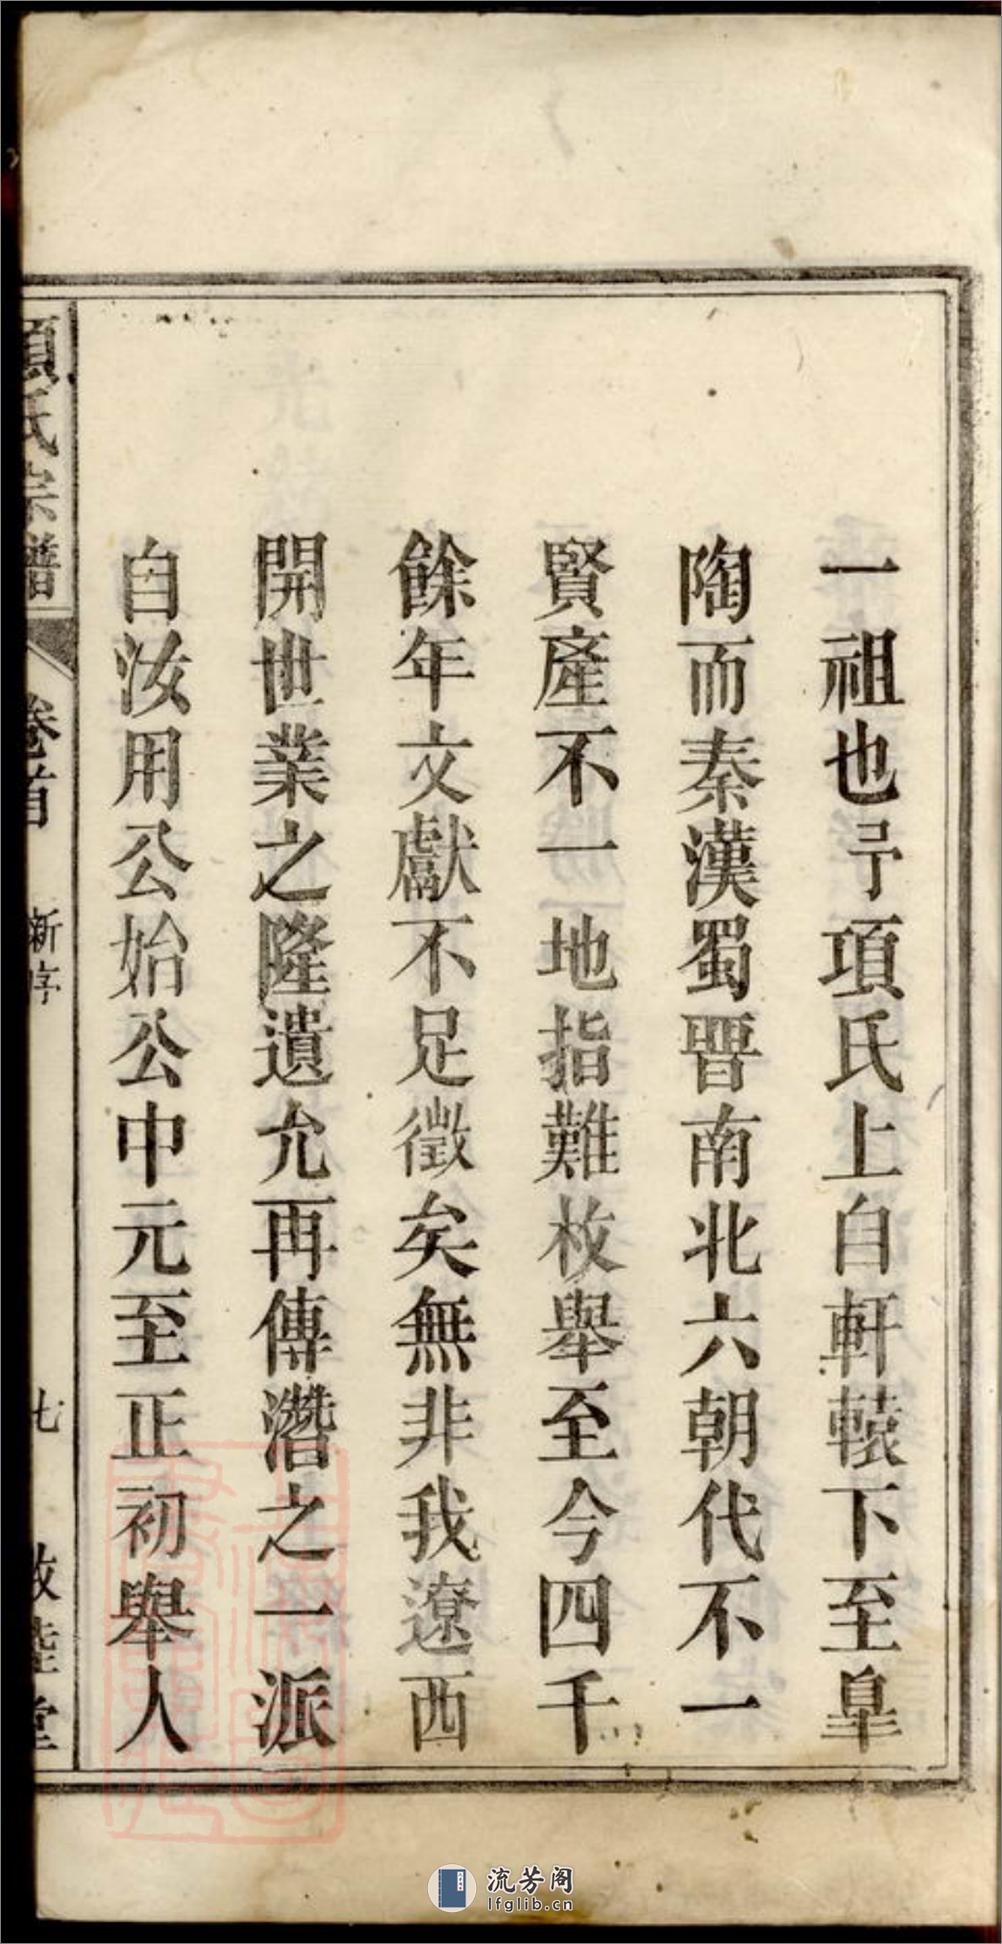 一祖也予項氏上自軒轅下至皐
陶而秦漢蜀晋南北六朝代不一
賢産不一地指難枚舉至今四千
餘年文獻不足徵矣無非我遼西
開世業之隆遺允再傳濳之一派
自汝用公始公中元至正初舉人
項氏宗譜 卷首 新序 七 敦睦堂
流芳阁
lfglib.cn